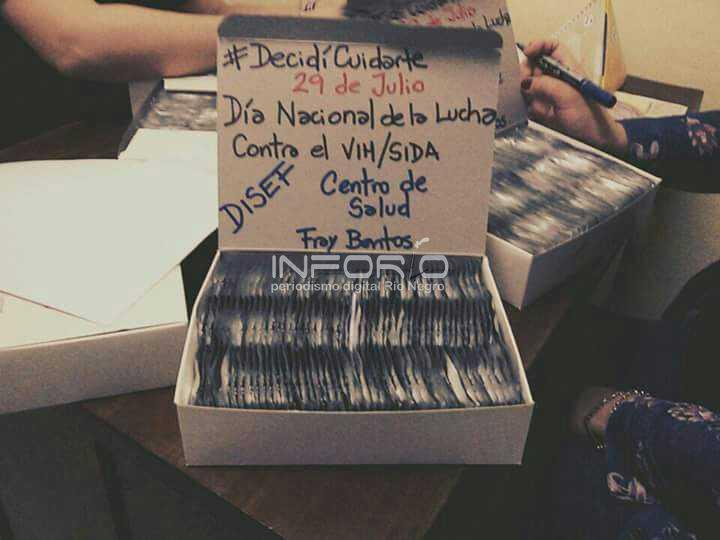 de Julio
Lucha
#Decidí Cuidarte
29 de Julio
Día Nacional de la Lucha
Contra el VIH/SIDA
DISEF
Centro de
Salud
Fray Bentos
INFORÍO
periodismo digital Río Negro